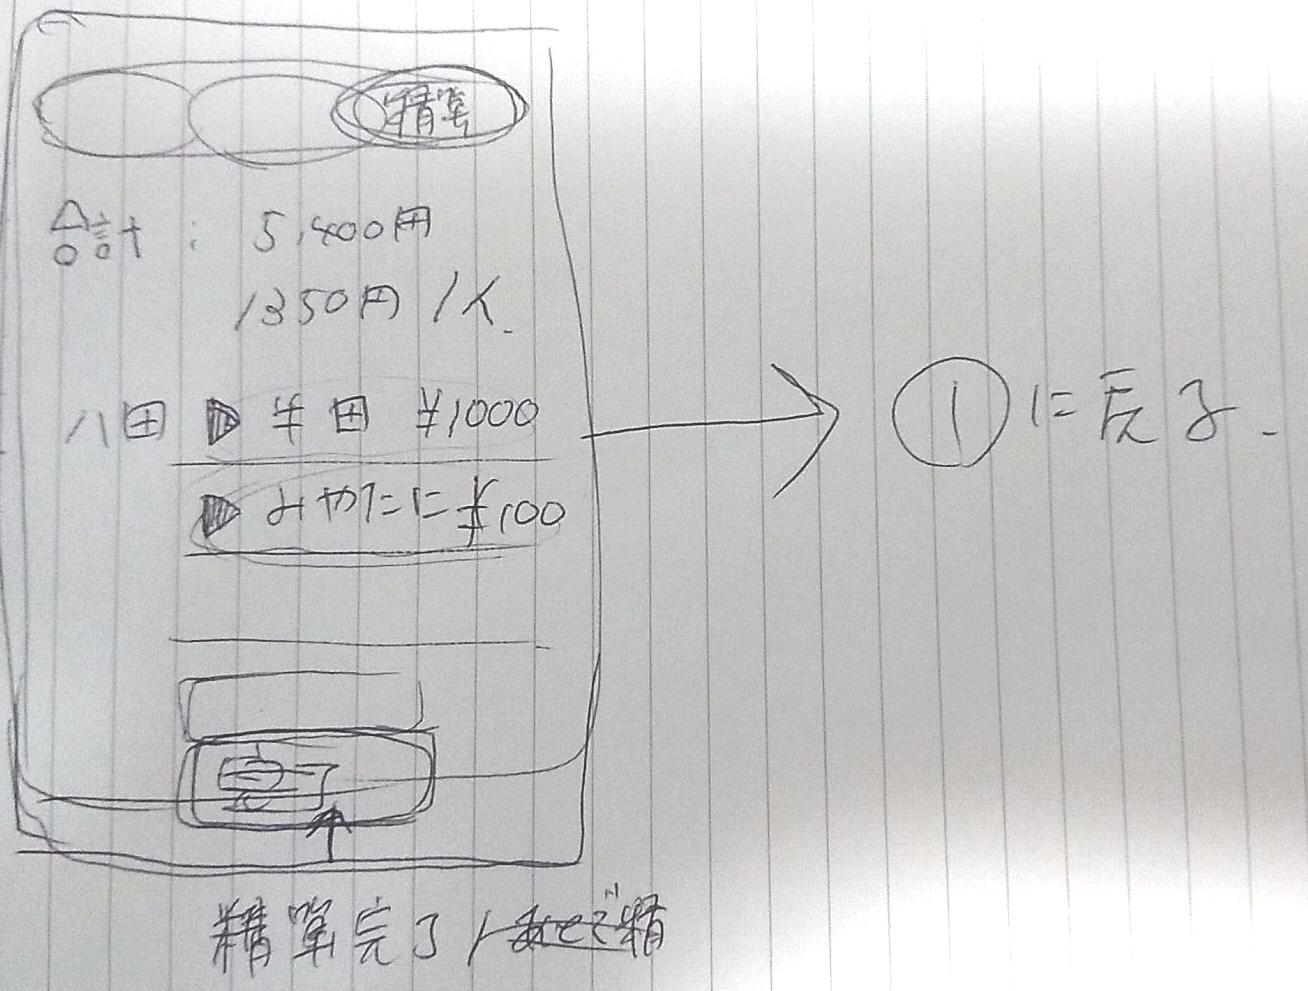 精算
合計 : 5,400円
1350円 / 人.
八田 ▶ 半田 ¥1000
▶ みやたに ¥100
精算完了 /
①に戻る.